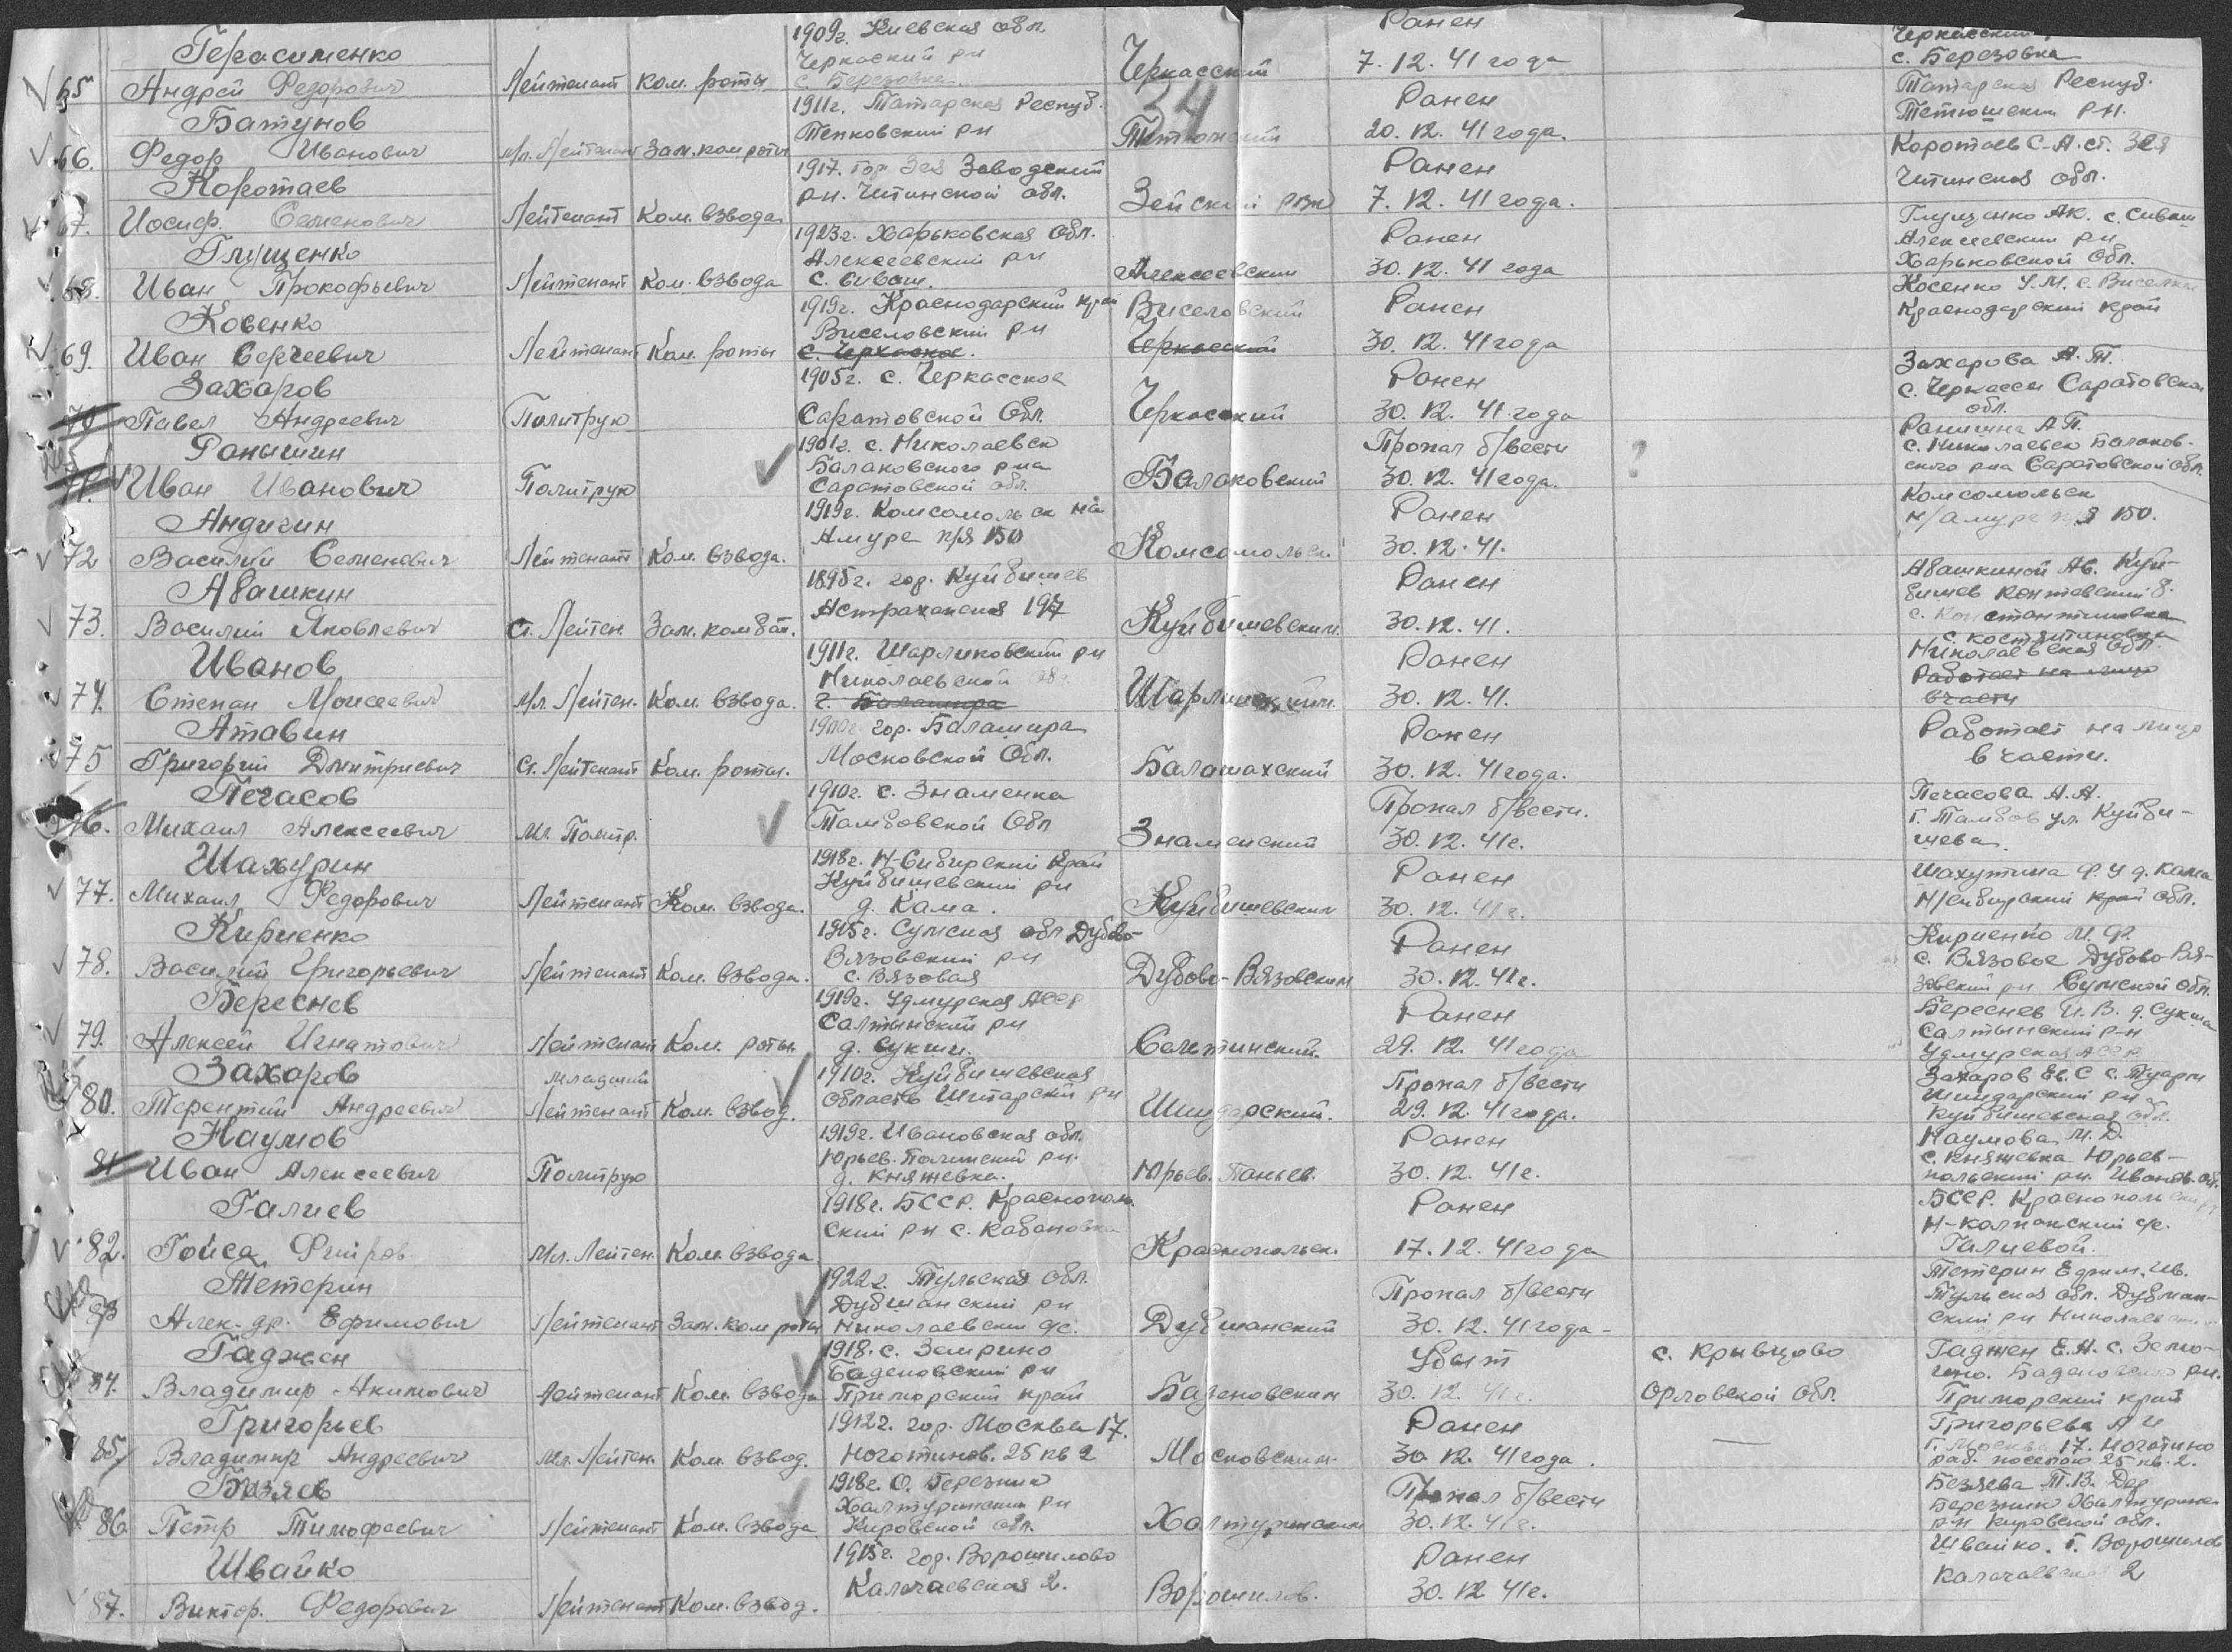 Герасименко
65 Андрей Федорович Лейтенант Ком. роты
1909г. Киевская обл.
Черкаский рн
с. Березовка
Черкасский
Ранен
7. 12. 41 года
Черкасский
с. Березовка
24
Батунов
66. Федор Иванович Мл. Лейтенант Зам. ком роты
1911г. Татарская Респуб.
Тепковский рн
Ранен
20. 12. 41 года.
Татарская Респуб.
Тетюшский рн.
Коротаев
67. Иосиф. Семенович Лейтенант Ком. взвода
1917. гор Зея Заводский
рн. Читинской обл.
Зейский рвк
Ранен
7. 12. 41 года.
Коротаев С-А. ст. Зея
Читинская обл.
Глущенко
68. Иван Прокофьевич Лейтенант Ком. взвода
1923г. Харьковская обл.
Алексеевский рн
с. Сиваш.
Алексеевский
Ранен
30. 12. 41 года
Глущенко АК. с. Сиваш
Алексеевский рн
Харьковской обл.
Ковенко
69. Иван Сергеевич Лейтенант Ком. роты
1919г. Краснодарский край
Виселовский рн
с. Черкаское.
Виселовский
Черкасский
Ранен
30. 12. 41 года
Косенко У.М. с. Виселки
Краснодарский край
Захаров
70 Павел Андреевич Политрук
1905г. с. Черкасское
Саратовской Обл.
Черкасский
Ранен
30. 12. 41 года
Захарова А.Т.
с. Черкассы Саратовская
обл.
Ранышин
71. Иван Иванович Политрук
1901г. с. Николаевск
Балаковского рна
Саратовской обл.
Балаковский
Пропал б/вести
30. 12. 41 года.
?
Ранишна А П.
с. Николаевск Балаков-
ского рна Саратовской обл.
Андигин
72 Василий Семенович Лейтенант Ком. взвода.
1919г. Комсомольск на
Амуре п/я 150
Комсомольск.
Ранен
30. 12. 41.
Комсомольск
н/Амуре п/я 150.
Авашкин
73. Василий Яковлевич Ст. Лейтен. Зам. комбат.
1895г. гор. Куйбишев
Астраханская 197
Куйбишевским.
Ранен
30. 12. 41.
Авашкиной Ав. Куй-
бишев
с. Константиновка
с. костянтиновка
Иванов
74. Степан Моисеевич Мл. Лейтен. Ком. взвода.
1911г. Шарликовский рн
Николаевской
г. Балашира
Ранен
30. 12. 41.
Николаевская Обл.
Работает на лицо
в части
Атавин
75 Григорий Дмитриевич Ст. Лейтенант Ком. роты.
гор. Балашира
Московской Обл.
Балашахский
Ранен
30. 12. 41 года.
Работает на лицо
в части.
Пегасов
76. Михаил Алексеевич Мл. Политр.
1910г. с. Знаменка
Тамбовской Обл
Знаменский
Пропал б/вести.
30. 12. 41г.
Печасова А. А.
г. Тамбов ул. Куйби-
шева.
Шахурин
77. Михаил Федорович Лейтенант Ком. взвода.
1918г. Н-Сибирский край
Куйбишевский рн
д. Кама.
Куйбишевским
Ранен
30. 12. 41г.
Шахутина Ф. У д. Кама
Н/сибирский край обл.
Кириенко
78. Василий Григорьевич Лейтенант Ком. взвода.
1915г. Сумская обл Дубово-
Вязовский рн
с. Вязовая
Дубово-Вязовским
Ранен
30. 12. 41г.
Кириенко М. Ф.
с. Вязовое Дубово-Вя-
зовский рн Сумской обл.
Береснев
79. Алексей Игнатович Лейтенант Ком. роты.
1919г. Удмурская АССР
Салтынский рн
д. Сукши.
Селтинский.
Ранен
29. 12. 41 года
Береснев И. В. д. Сукша
Салтынский р-н
Удмурская АССР
Захаров
80. Терентий Андреевич Младший Лейтенант Ком. взвод.
1910г. Куйбишевская
область Шитарский рн
Шиндарский.
Пропал б/вести
29. 12. 41 года.
Захаров Ев. С
Шиндарский рн
Куйбишевская обл.
Наумов
81. Иван Алексеевич Политрук
1919г. Ивановская обл.
Юрьев-Полинский рн.
д. Княжевка.
Юрьев. Паньев.
Ранен
30. 12. 41г.
Наумова М. Д.
с. Княжевка Юрьев-
польский рн. Иванов. об.
Галиев
82. Гойса Мл. Лейтен. Ком. взвода
1918г. БССР. Краснополь
ский рн с. Кабановка
Краснопольск.
Ранен
17. 12. 41 года
БССР. Краснопольский
Галиевой.
Тетерин
83 Алек-др. Ефимович Лейтенант Зам. ком роты
1922г. Тульская обл.
Дубшанский рн
Николаевский с/с.
Дубшанский
Пропал б/вести
30. 12. 41 года-
Тетерин Ефим. Ив.
Тульская обл. Дубшан-
ский рн
Гаджен
84. Владимир Акимович Лейтенант Ком. взвода
1918. с. Земрино
Баденовский рн
Приморский край
Базеновским
Убыт
30. 12. 41г.
с. Крывцово
Орловской Обл.
Гаджен Е.А. с.
Приморский край
Григорьев
85, Владимир Андреевич Мл. Лейтен. Ком. взвод.
1912г. гор. Москва 17.
Ноготинов. 25 кв 2
Московским.
Ранен
30 12. 41 года.
—
Григорьева А И
г. Москва 17. Ногатино
раб. поселок 25 кв. 2.
Бизяев
86. Петр Тимофеевич Лейтенант Ком. взвода
1918г. О. Березник
Халтуринский рн
Кировской обл.
Халтуринским
Пропал б/вести
30. 12. 41г.
Безяева Т. В. Дер
Березнико Халтуринс.
рн Кировской обл.
Швайко
87. Виктор. Федорович Лейтенант Ком. взвод.
1915г. гор. Ворошилово
Калачаевская 2.
Ворошилов.
Ранен
30. 12 41г.
Швайко. г. Ворошилов
Калачаевская 2